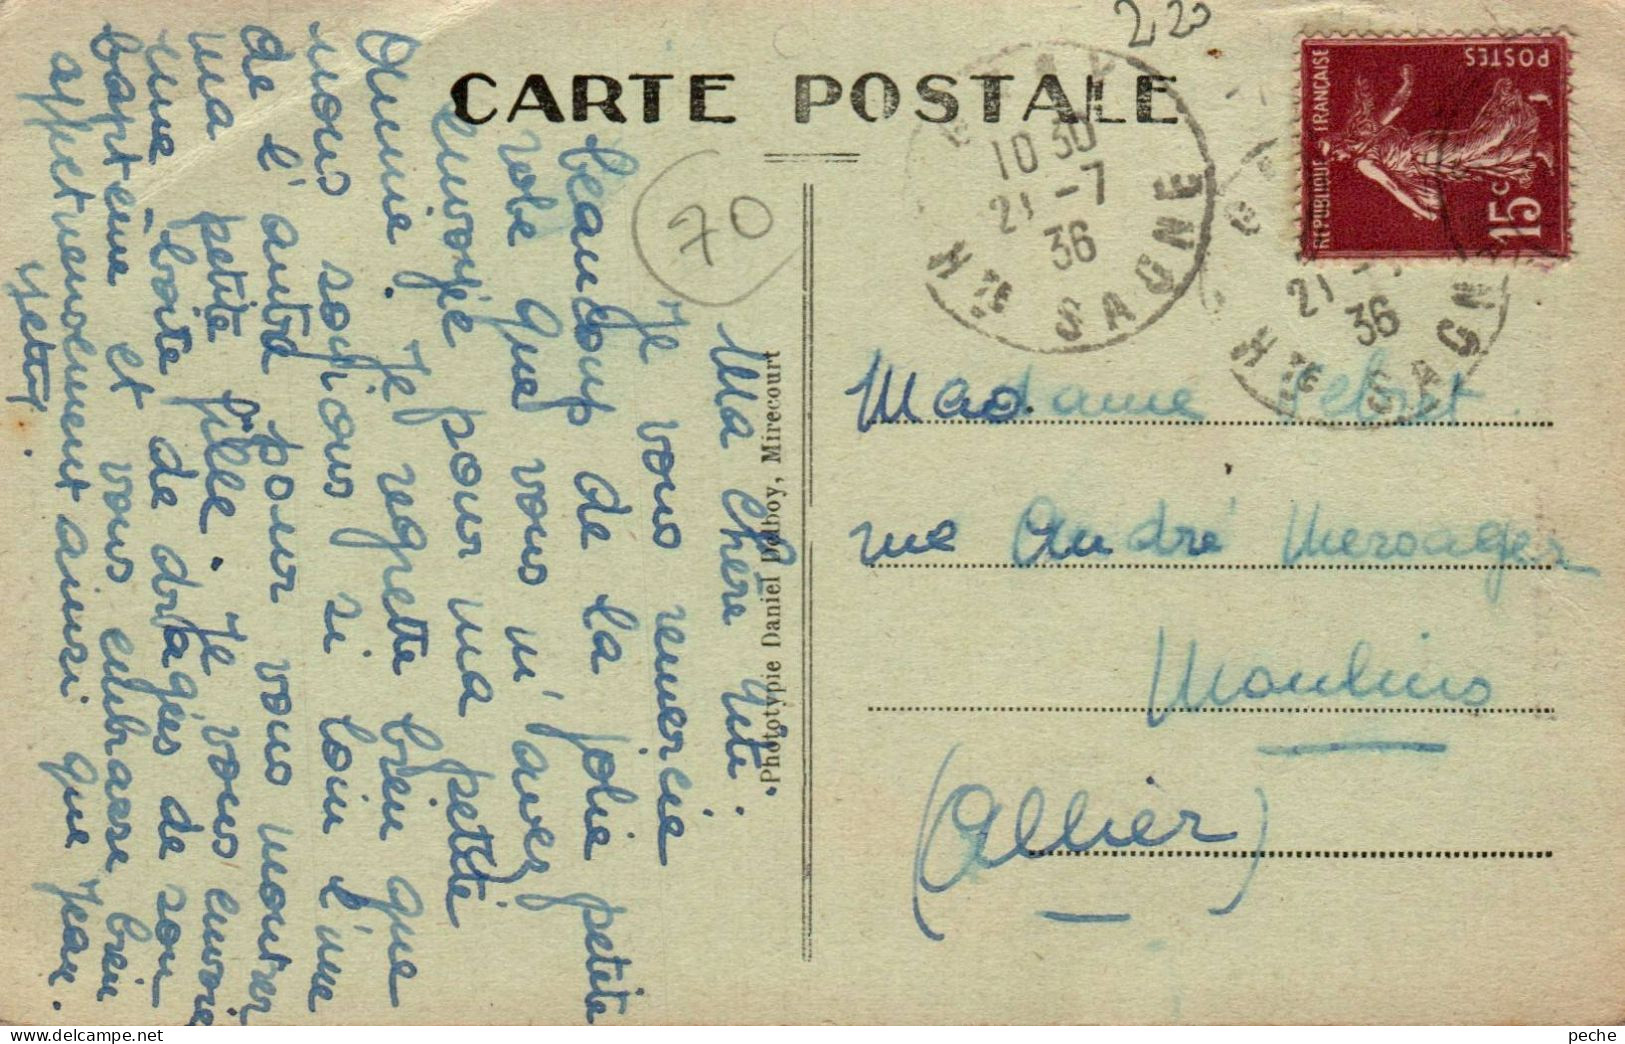 220
CARTE POSTALE
70
10 30
21 -7
36
SAGNE
Hte
21
36
SAGN
Hte
REPUBLIQUE FRANÇAISE
POSTES
15c
Ma chère Titi.
Je vous remercie
beaucoup de la jolie petite
robe que vous m'avez
envoyée pour ma petite
Annie. Je regrette bien que
nous soyions si loin l'une
de l'autre pour vous montrer
ma petite fille. Je vous envoie
une boite de dragées de son
baptême et vous embrasse bien
affectueusement ainsi que Jean.
Yetty.
Photoypie Daniel Delboy, Mirecourt
Madame
rue André Messager
Moulins
(Allier)
peche